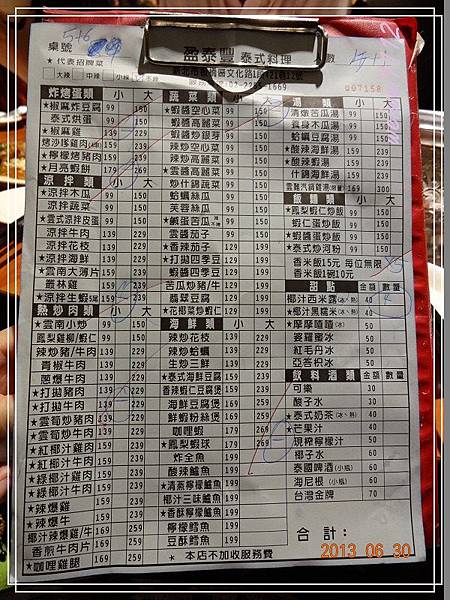 桌號 5+6
盈泰豐 泰式料理
* 代表招牌菜
大辣 中辣 小辣
007158
炸烤蛋類 小 大
★椒麻炸豆腐 99 150
泰式烘蛋 150
★椒麻雞 139 229
★檸檬烤豬肉 159 259
★月亮蝦餅 179 269
涼拌類 小 大
★涼拌木瓜 99 150
涼拌蔬菜 99 150
★雲式涼拌皮蛋 99 150
涼拌牛肉 139 229
涼拌花枝 139 229
涼拌海鮮 139 229
★雲南大薄片 159 259
叢林雞 159
★涼拌生蝦 159
熱炒肉類 小 大
★雲南小炒 99 150
鳳梨雞柳/蝦仁 139 229
辣炒豬/牛肉 139 229
青椒牛肉 139 229
蔥爆牛肉 139 229
★打拋豬肉 139 229
★打拋牛肉 139 229
★雲筍炒豬肉 139 229
★雲筍炒牛肉 139 229
★紅椰汁雞肉 159 259
★紅椰汁牛肉 159 259
★綠椰汁雞肉 159 259
★綠椰汁牛肉 159 259
★辣爆雞 159 259
★辣爆牛 159 259
椰汁辣爆雞/牛 169 259
香煎牛肉片 169 259
★咖哩雞腿 169 259
蔬菜類 小 大
蝦醬空心菜 99 150
蝦醬高麗菜 99 150
蝦醬炒銀芽 99 150
辣炒空心菜 99 150
辣炒高麗菜 99 150
炒什錦蔬菜 99 150
蛤蠣絲瓜 99 150
芙蓉絲瓜 99 150
★鹹蛋苦瓜 99 150
雲醬茄子 99 150
★香辣茄子 129 199
★打拋四季豆 129 199
蝦醬四季豆 129 199
苦瓜炒豬/牛 129 199
翡翠豆腐 129 199
★花椰菜炒蝦仁 129 199
海鮮類 小 大
辣炒花枝 139 229
辣炒蛤蠣 139 229
生炒三鮮 139 229
★泰式海鮮豆腐 159 239
香辣蝦仁豆腐煲 159 239
海鮮豆腐煲 169 259
鮮蝦粉絲煲 169 259
咖哩蝦 179 269
★鳳梨蝦球 179 269
炸全魚 199
酸辣鱸魚 199
★清蒸檸檬鱸魚 199
椰汁三味鱸魚 199
★香酥檸檬鱸魚 199
檸檬鱈魚 199
豆酥鱈魚 199
湯類 小 大
清燉苦瓜湯 99 150
養身木瓜湯 99 150
蛤蠣豆腐湯 99 150
★酸辣海鮮湯 159 239
★酸辣蝦湯 159 239
什錦海鮮湯 159 239
雲南汽鍋雞湯 169 300
飯麵類 小 大
★鳳梨蝦仁炒飯 99 150
蝦仁蛋炒飯 99 150
蝦醬蛋炒飯 99 150
★泰式炒河粉 99 150
香米飯15元 每位無限
香米飯1碗10元
甜點 金額 數量
椰汁西米露(冰、熱) 40
★椰汁黑糯米(冰、熱) 40
★摩摩喳喳(冰) 50
婆羅蜜冰 50
紅毛丹冰 50
亞答枳冰 50
飲料酒類 金額 數量
可樂 30
酸子水 30
★泰式奶茶(冰、熱) 40
★芒果汁 40
★現榨檸檬汁 50
椰子水 60
泰國啤酒(小瓶) 60
海尼根(小瓶) 60
台灣金牌 70
合計:
* 本店不加收服務費
2013 06 30